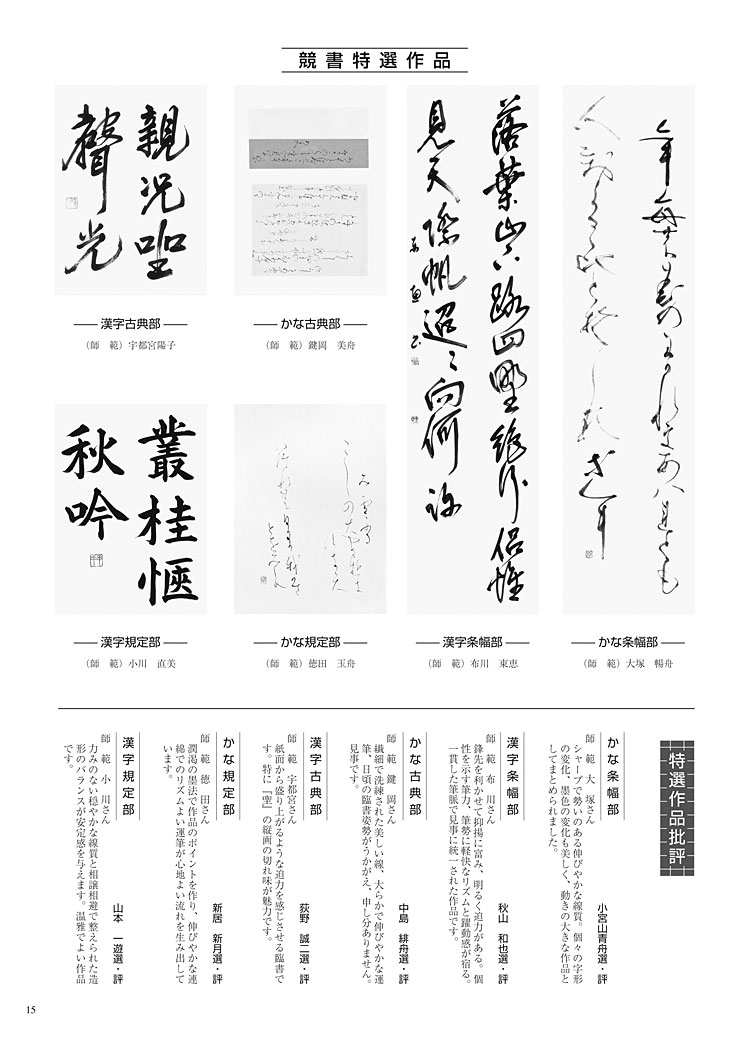 競書特選作品
落葉山六路四野絶行侶惟
見天際帆迢〻向何許
親況聖
聲光
漢字古典部
（師　範）宇都宮陽子
かな古典部
（師　範）鍵岡　美舟
叢桂愜
秋吟
漢字規定部
（師　範）小川　直美
かな規定部
（師　範）徳田　玉舟
漢字条幅部
（師　範）布川　東恵
かな条幅部
（師　範）大塚　暢舟
特選作品批評
かな条幅部
小宮山青舟選・評
師　範　大　塚さん
シャープで勢いのある伸びやかな線質。個々の字形
の変化、墨色の変化も美しく、動きの大きな作品と
してまとめられました。
漢字条幅部
秋山　和也選・評
師　範　布　川さん
鋒先を利かせて抑揚に富み、明るく迫力がある。個
性を示す筆力、筆勢に軽快なリズムと躍動感が宿る。
一貫した筆脈で見事に統一された作品です。
かな古典部
中島　緋舟選・評
師　範　鍵　岡さん
繊細で洗練された美しい線、大らかで伸びやかな運
筆、日頃の臨書姿勢がうかがえ、申し分ありません。
見事です。
漢字古典部
荻野　誠二選・評
師　範　宇都宮さん
紙面から盛り上がるような迫力を感じさせる臨書で
す。特に『聖』の縦画の切れ味が魅力です。
かな規定部
新居　新月選・評
師　範　徳　田さん
潤渇の墨法で作品のポイントを作り、伸びやかな連
綿でのリズムよい運筆が心地よい流れを生み出して
います。
漢字規定部
山本　一遊選・評
師　範　小　川さん
力みのない穏やかな線質と相譲相避で整えられた造
形のバランスが安定感を与えます。温雅でよい作品
です。
15